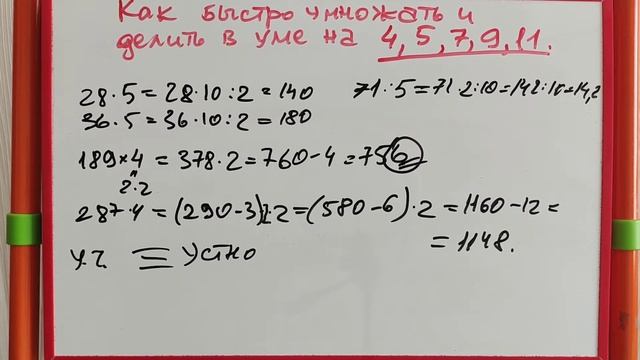 Как быстро умножать и
делить в уме на 4, 5, 7, 9, 11.
28·5=28·10:2=140 71:5=71·2:10=142:10=14,2
36·5=36·10:2=180
189×4=378·2=760-4=756
2·2
287·4=(290-3)·2·2=(580-6)·2=1160-12=
=1148.
У.Z. ≡ Устно